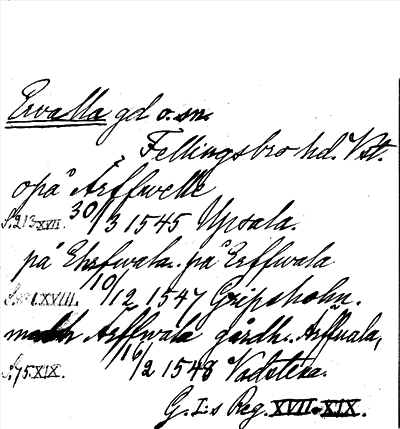 Ervalla gd o. sn.
Fellingsbro hd. Vst.
opå Ärffwelle
S. 213 XVII. 30/3 1545 Upsala.
på Ehrfwala. på Erffwala
XVIII. 10/12 1547 Gripsholm.
Ärffwala gårdh. Ärffuala,
S. 75. XIX. 16/2 1548 Vadstena.
G. I:s Reg. XVII-XIX.